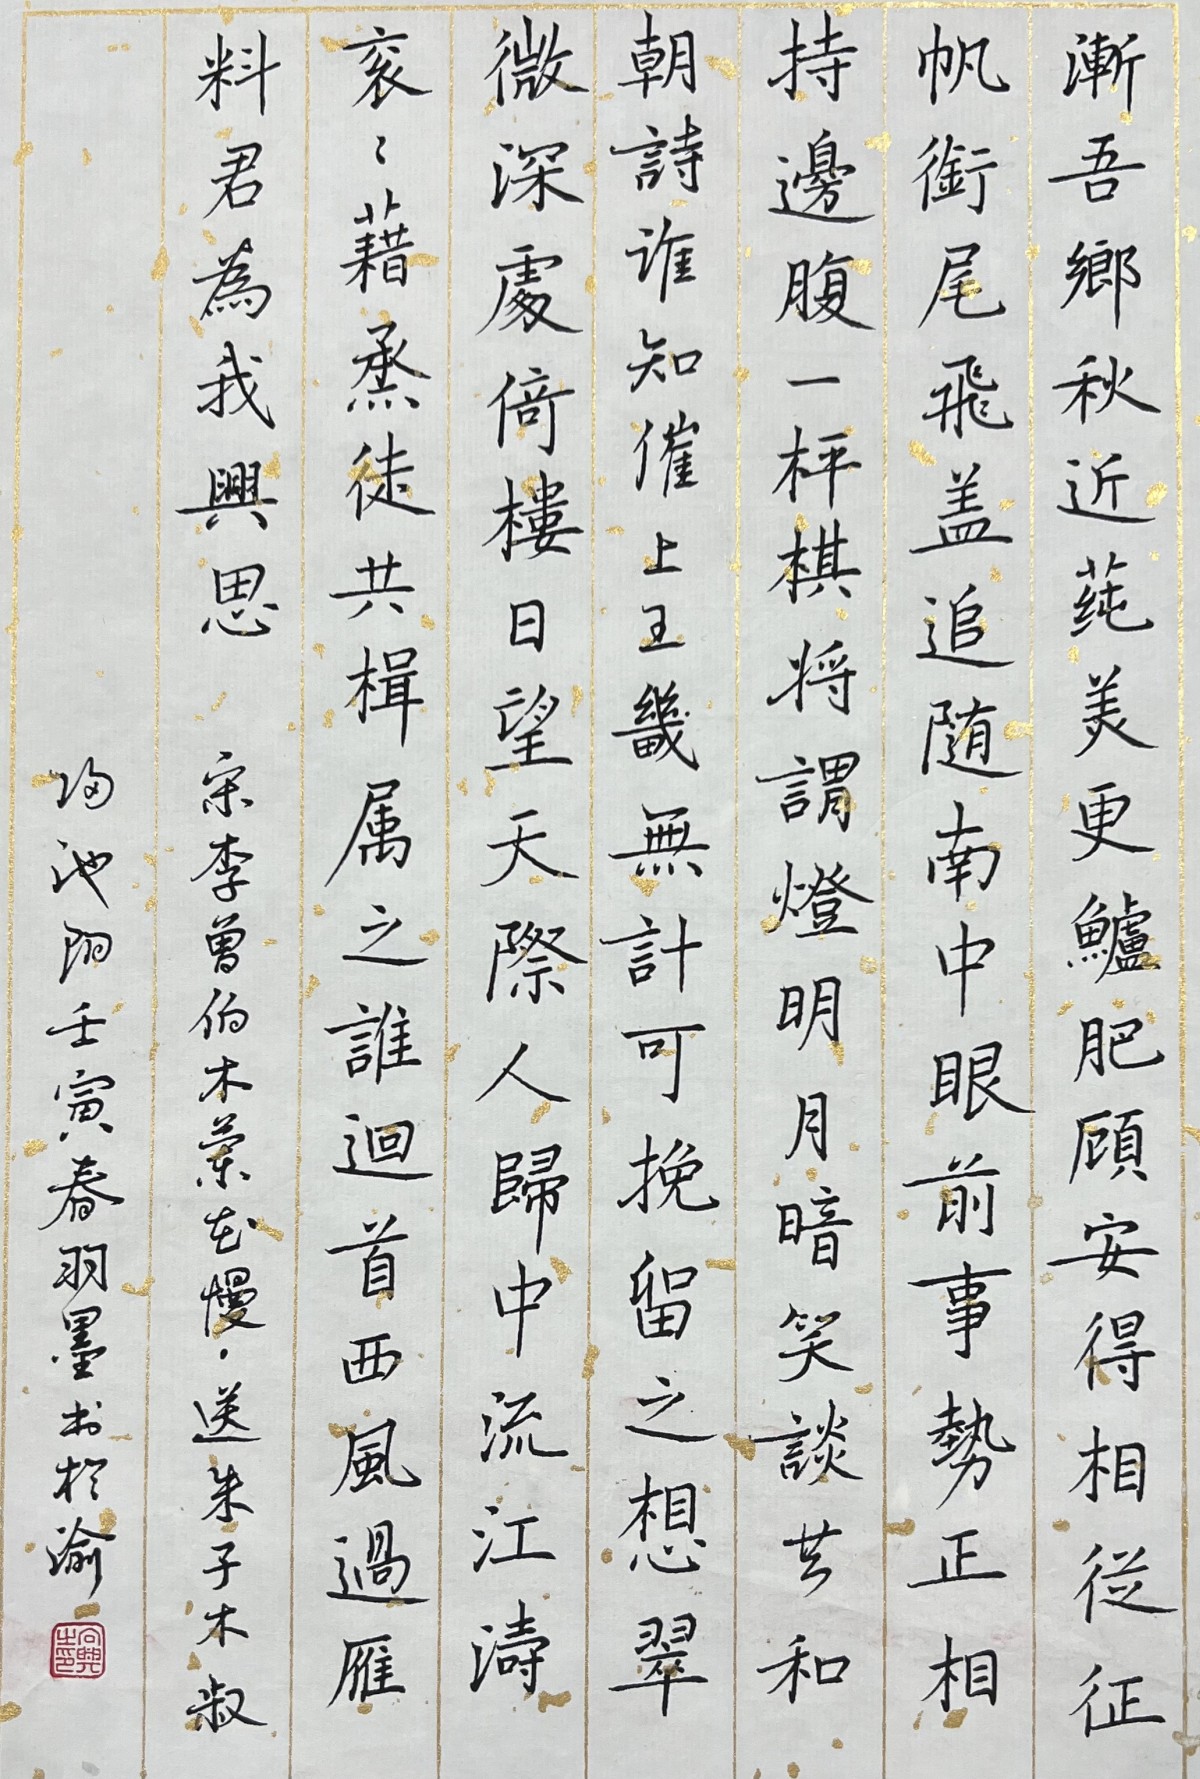 漸吾鄉秋近蒓美更鱸肥顧安得相從征
帆銜尾飛盖追随南中眼前事勢正相
持邊腹一枰棋將謂燈明月暗笑談共和
朝詩谁知催上王畿無計可挽留之想翠
微深處倚樓日望天際人歸中流江濤
衮〻藉烝徒共楫属之誰迴首西風過雁
料君為我興思
宋李曾伯木蘭花慢·送朱子木叔
池陽壬寅春羽墨书於渝